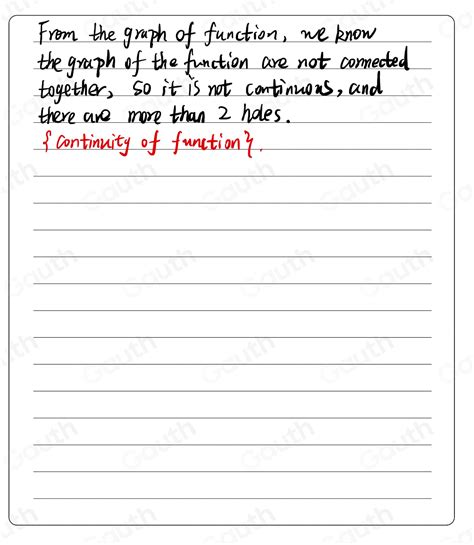 From the graph of function, we know
the graph of the function are not connected
together, so it is not continuous, and
there are more than 2 holes.
{continuity of function}.